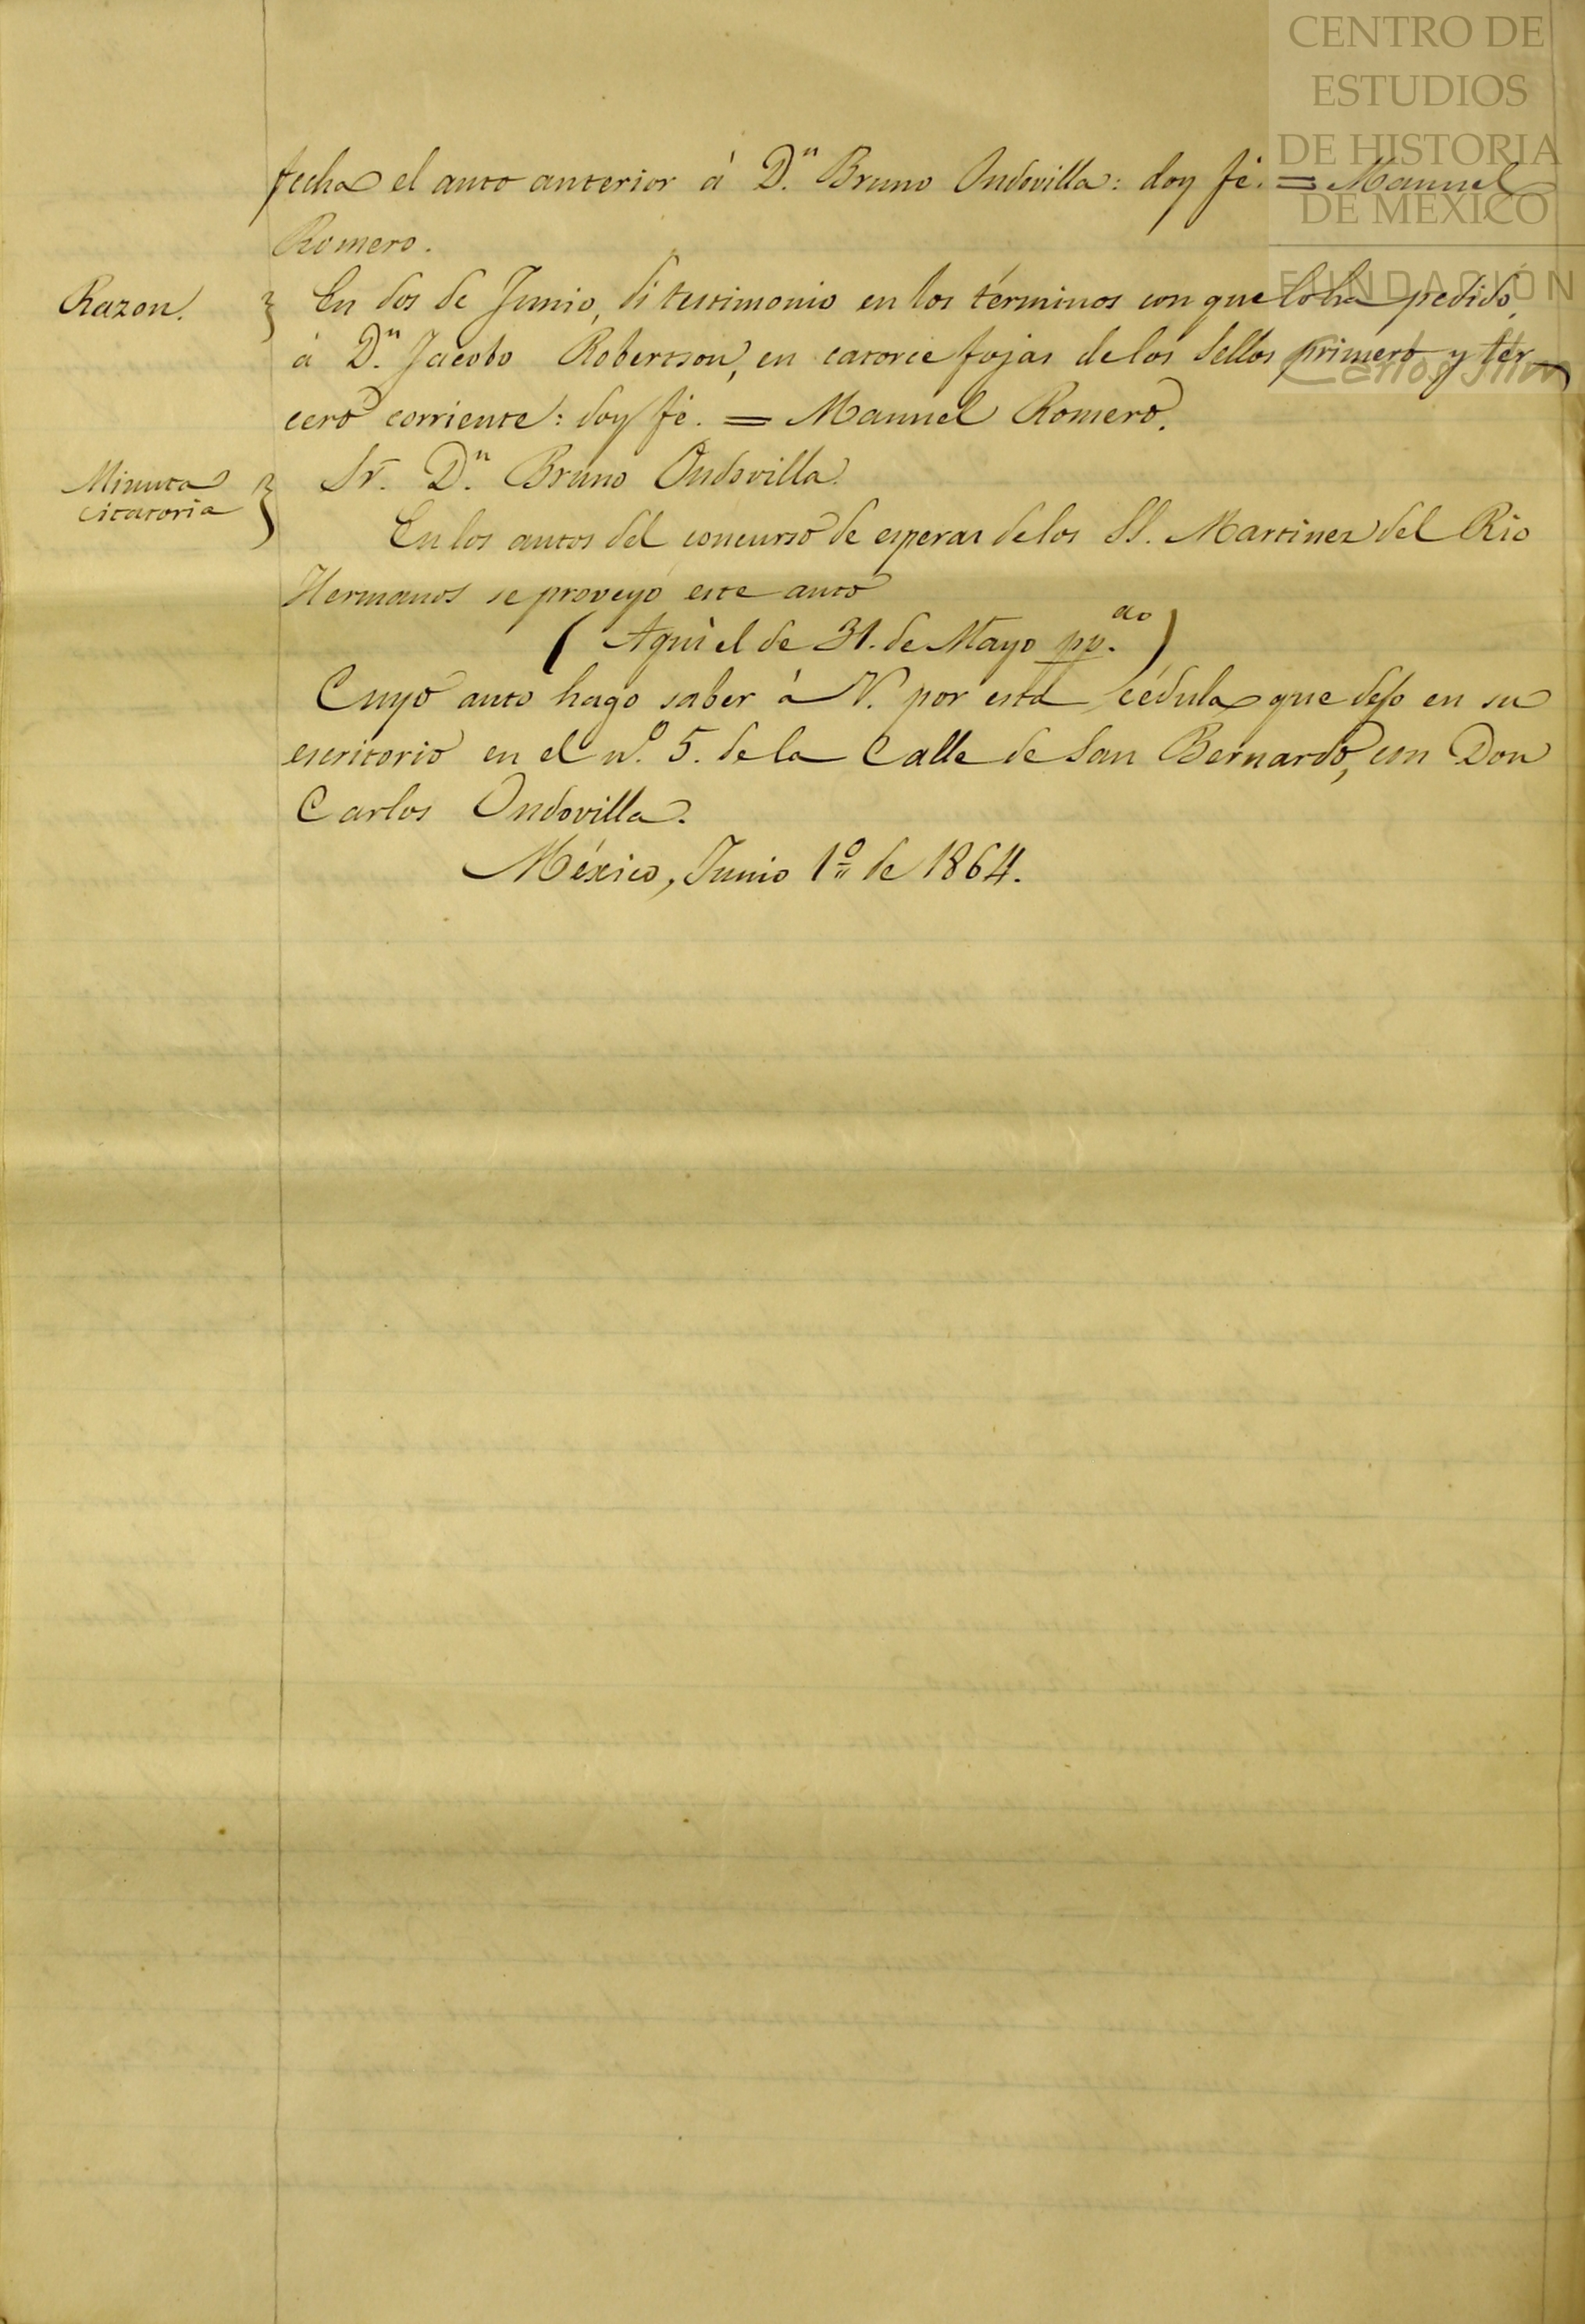 CENTRO DE
ESTUDIOS
DE HISTORIA
DE MÉXICO
FUNDACIÓN
Carlos Slim
fecha el auto anterior á D.n Bruno Ondovilla: doy fé. = Manuel
Romero.
Razon. En dos de Junio, dí testimonio en los términos con que lo ha pedido,
á D.n Jacobo Robertson, en catorce fojas de los Sellos primero y ter-
cero corriente: doy fé. = Manuel Romero.
Minuta
citatoria
Sr. D.n Bruno Ondovilla.
En los autos del concurso de esperas de los SS. Martinez del Rio
Hermanos se proveyó este auto
( Aquí el de 31. de Mayo pp.do )
Cuyo auto hago saber á V. por esta cédula que dejo en su
escritorio en el n.o 5. de la Calle de San Bernardo, con Don
Carlos Ondovilla.
México, Junio 1º de 1864.